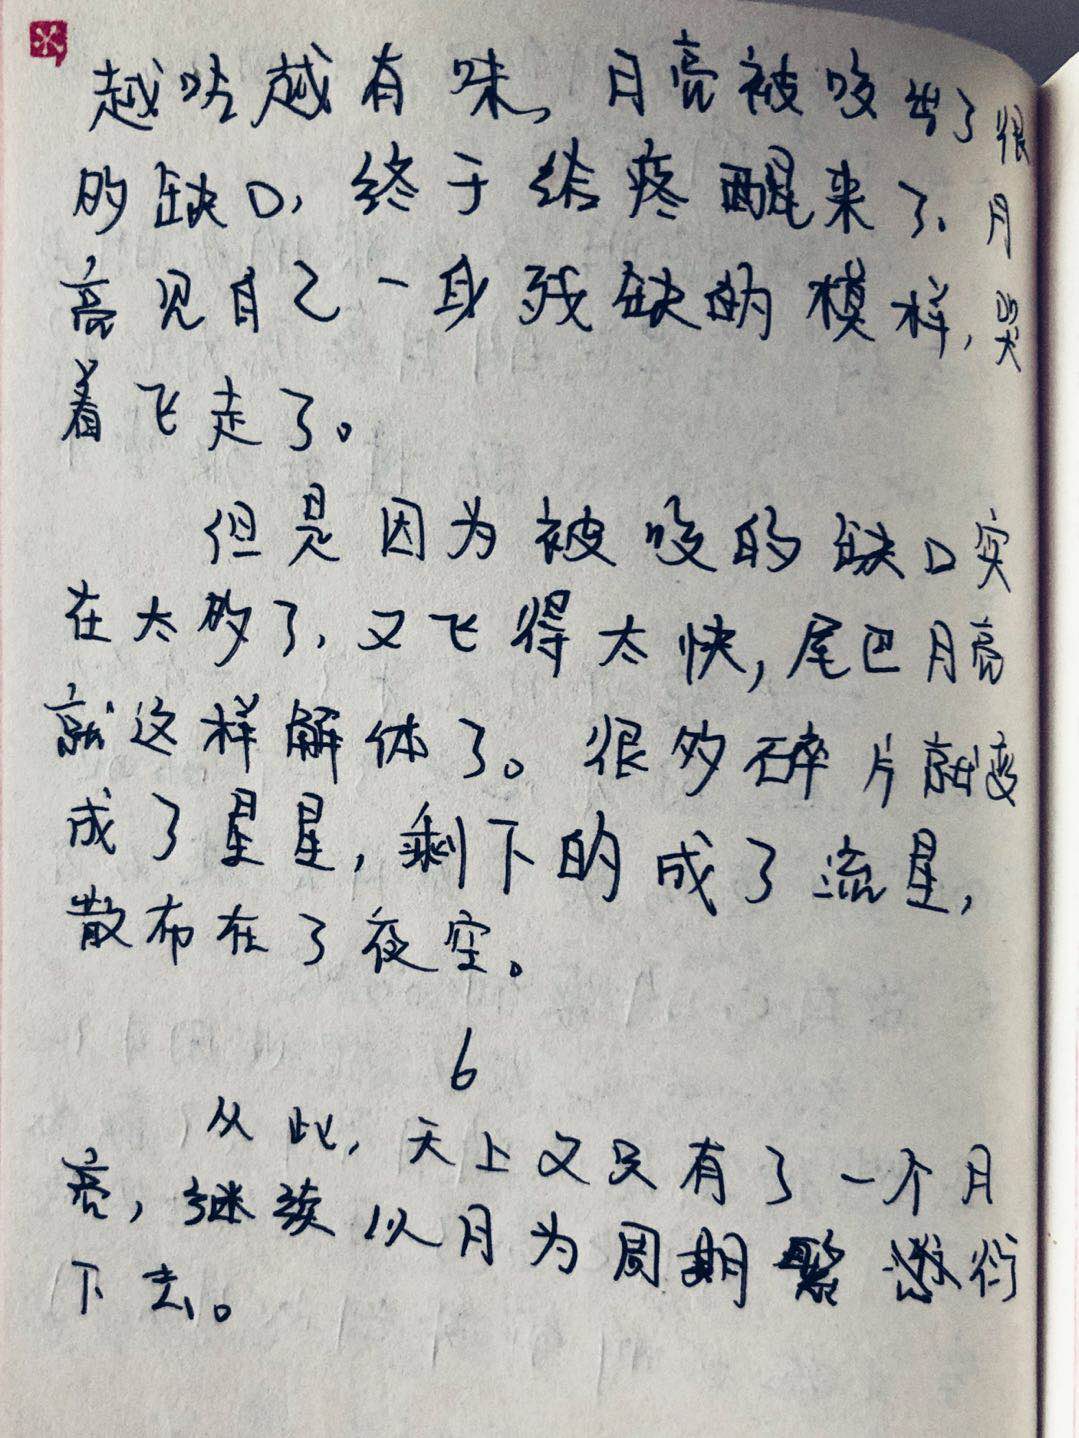 越咕越有味，月亮被咬出了很
的缺口，终于给疼醒来了。月
亮见自己一身残缺的模样，哭
着飞走了。
但是因为被咬的缺口实
在太多了，又飞得太快，尾巴月亮
就这样解体了。很多碎片就变
成了星星，剩下的成了流星，
散布在了夜空。
6
从此，天上又只有了一个月
亮，继续以月为周期繁衍
下去。